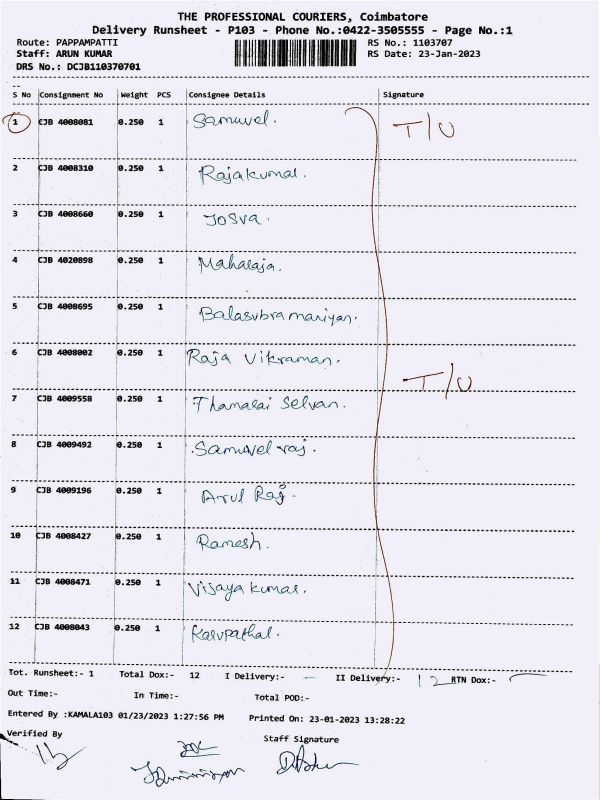 THE PROFESSIONAL COURIERS, Coimbatore
Delivery Runsheet - P103 - Phone No.:0422-3505555 - Page No.:1
Route: PAPPAMPATTI RS No.: 1103707
Staff: ARUN KUMAR RS Date: 23-Jan-2023
DRS No.: DCJB110370701
S No Consignment No Weight PCS Consignee Details Signature
1 CJB 4008081 0.250 1 Samuvel. T/U
2 CJB 4008310 0.250 1 Rajakumar.
3 CJB 4008660 0.250 1 Josva.
4 CJB 4020898 0.250 1 Maharaja.
5 CJB 4008695 0.250 1 Balasubramaniyan.
6 CJB 4008002 0.250 1 Raja Vikraman.
T/U
7 CJB 4009558 0.250 1 Thamarai Selvan.
8 CJB 4009492 0.250 1 Samuvel raj.
9 CJB 4009196 0.250 1 Arul Raj.
10 CJB 4008427 0.250 1 Ramesh.
11 CJB 4008471 0.250 1 Vijaya kumar.
12 CJB 4008043 0.250 1 Karupathal.
Tot. Runsheet:- 1 Total Dox:- 12 I Delivery:- - II Delivery:- 12 RTN Dox:-
Out Time:- In Time:- Total POD:-
Entered By :KAMALA103 01/23/2023 1:27:56 PM Printed On: 23-01-2023 13:28:22
Verified By Staff Signature